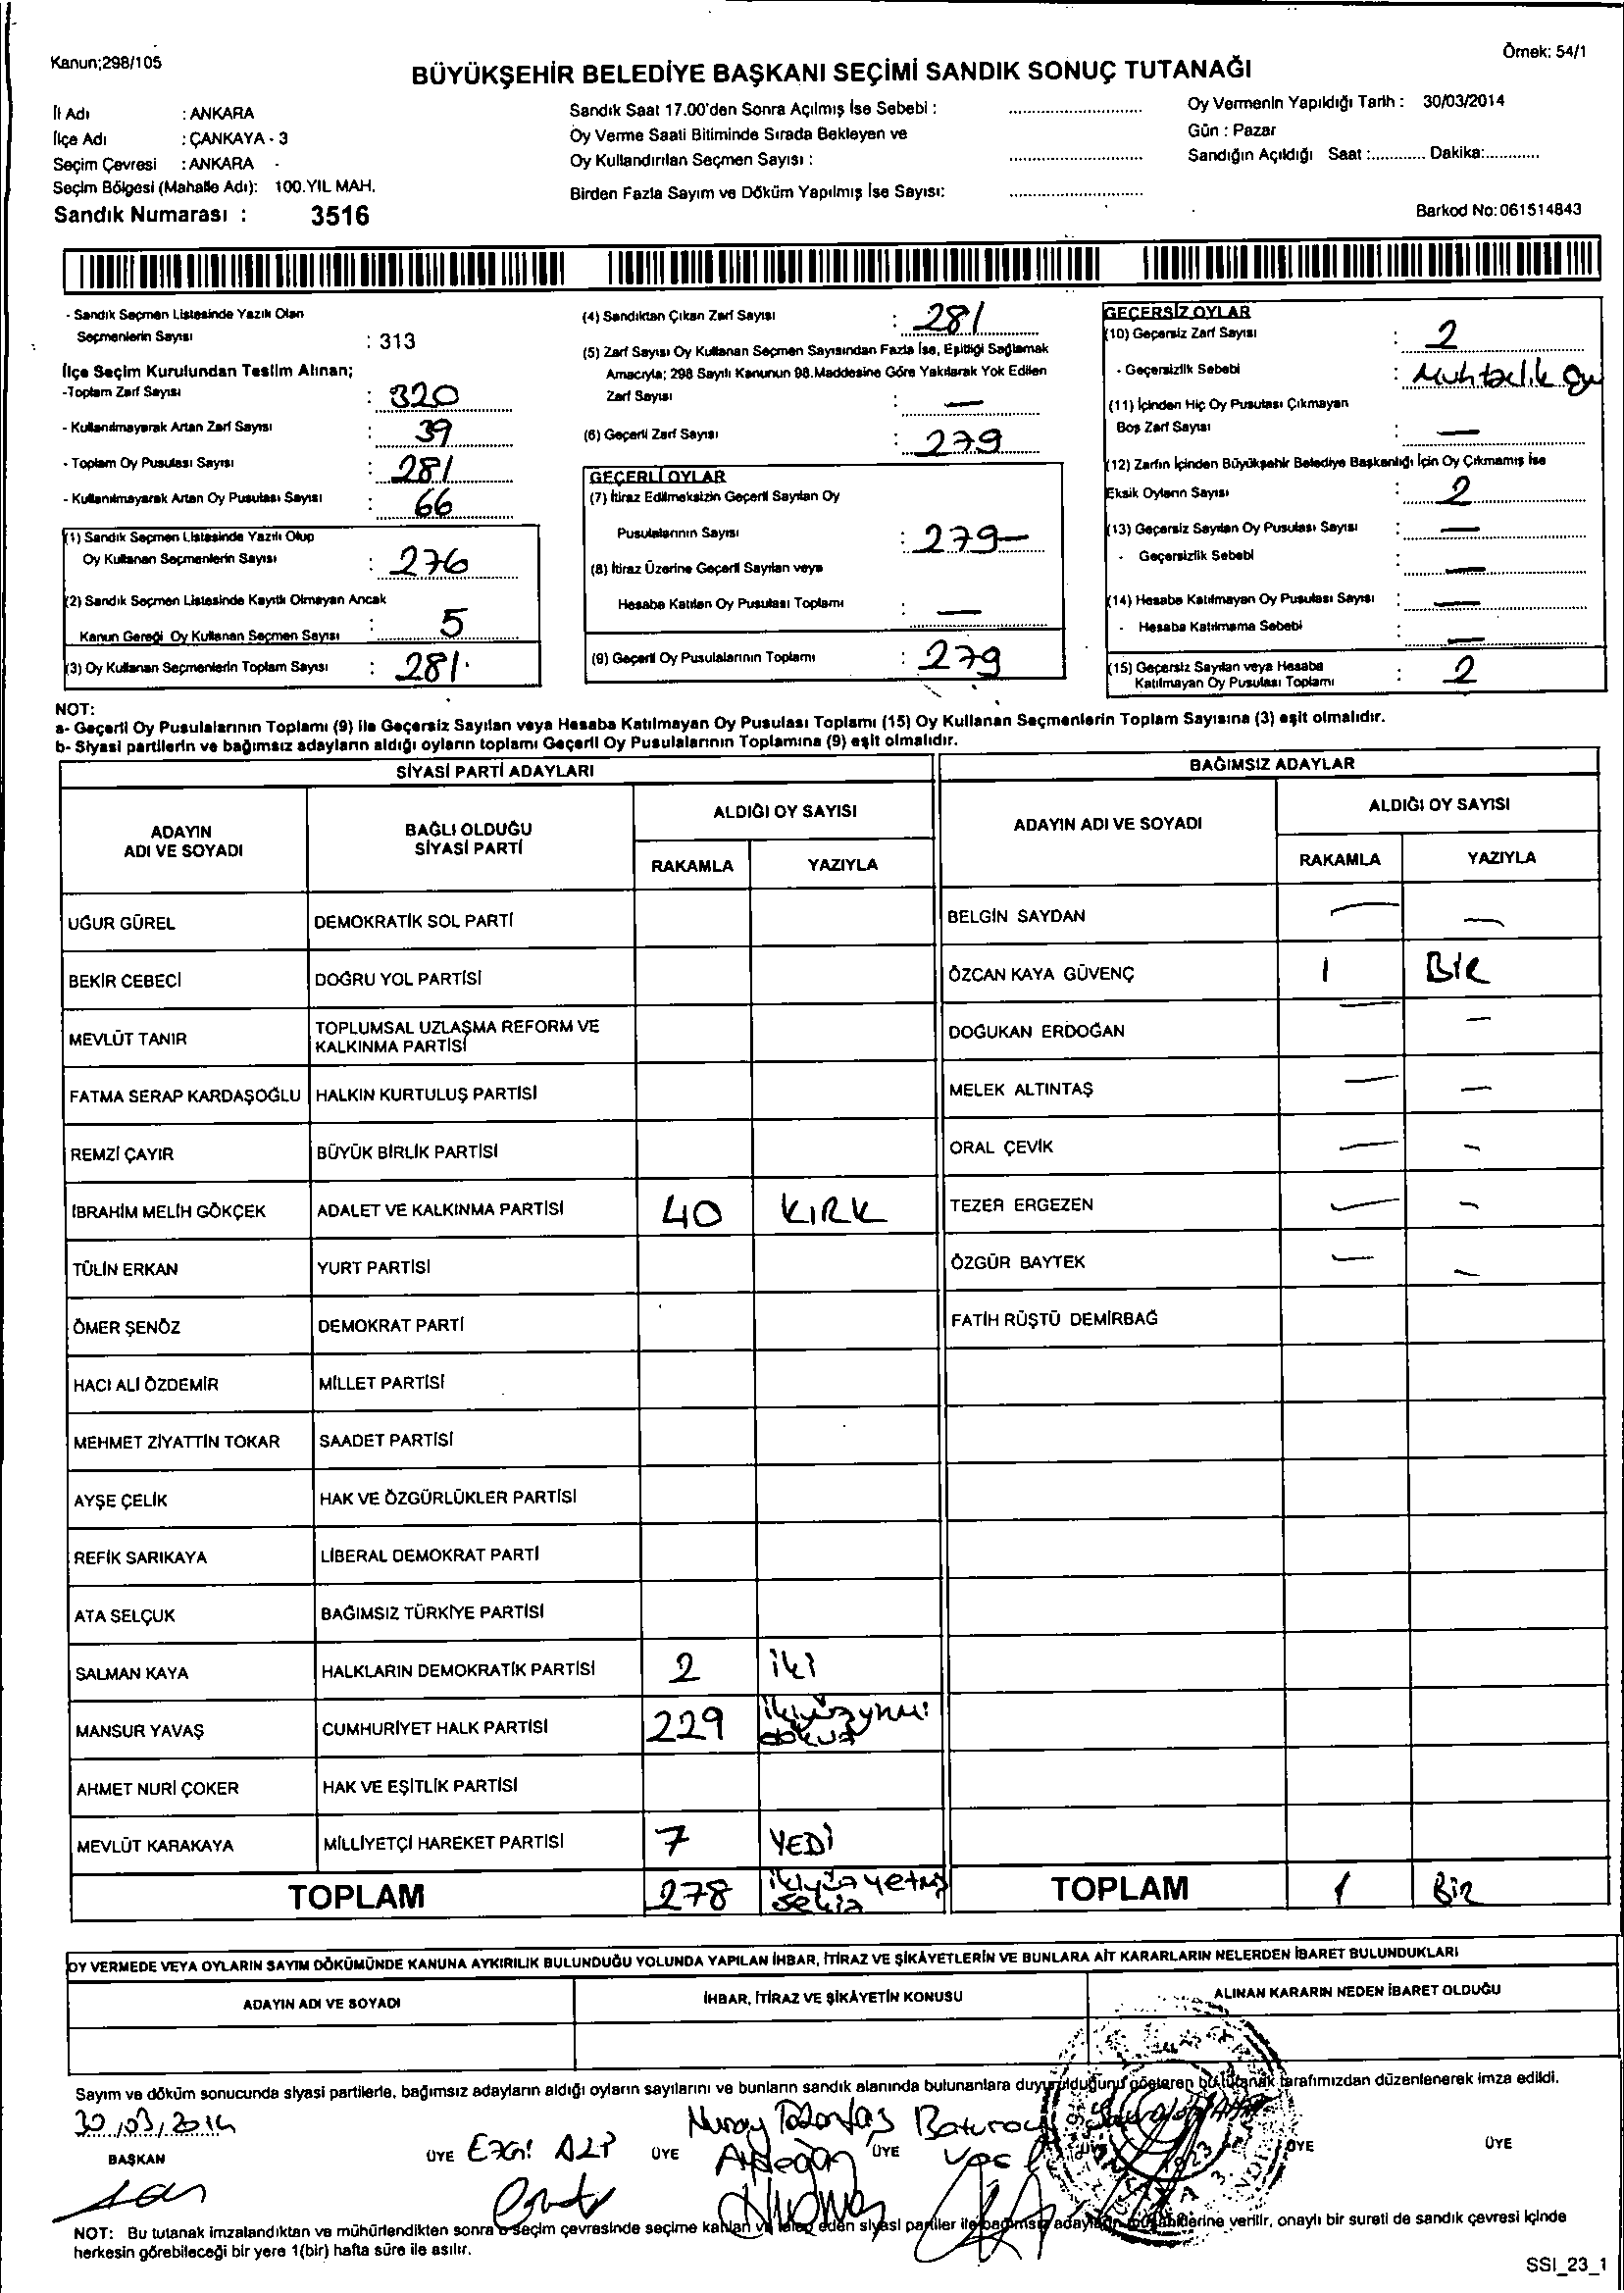 Kanun;298/105
Örnek: 54/1
BÜYÜKŞEHİR BELEDİYE BAŞKANI SEÇİMİ SANDIK SONUÇ TUTANAĞI
İl Adı : ANKARA
İlçe Adı : ÇANKAYA - 3
Seçim Çevresi : ANKARA -
Seçim Bölgesi (Mahalle Adı): 100.YIL MAH.
Sandık Numarası : 3516
Sandık Saat 17.00'den Sonra Açılmış İse Sebebi :
Oy Verme Saati Bitiminde Sırada Bekleyen ve
Oy Kullandırılan Seçmen Sayısı :
Birden Fazla Sayım ve Döküm Yapılmış İse Sayısı:
Oy Vermenin Yapıldığı Tarih : 30/03/2014
Gün : Pazar
Sandığın Açıldığı Saat :............ Dakika:............
Barkod No:061514843
- Sandık Seçmen Listesinde Yazılı Olan
Seçmenlerin Sayısı : 313
İlçe Seçim Kurulundan Teslim Alınan;
-Toplam Zarf Sayısı : 320
- Kullanılmayarak Artan Zarf Sayısı : 39
- Toplam Oy Pusulası Sayısı : 281
- Kullanılmayarak Artan Oy Pusulası Sayısı : 66
(1) Sandık Seçmen Listesinde Yazılı Olup
Oy Kullanan Seçmenlerin Sayısı : 276
(2) Sandık Seçmen Listesinde Kayıtlı Olmayan Ancak
Kanun Gereği Oy Kullanan Seçmen Sayısı : 5
(3) Oy Kullanan Seçmenlerin Toplam Sayısı : 281
(4) Sandıktan Çıkan Zarf Sayısı : 281
(5) Zarf Sayısı Oy Kullanan Seçmen Sayısından Fazla İse, Eşitliği Sağlamak
Amacıyla; 298 Sayılı Kanunun 98.Maddesine Göre Yakılarak Yok Edilen
Zarf Sayısı : —
(6) Geçerli Zarf Sayısı : 279
GEÇERLİ OYLAR
(7) İtiraz Edilmeksizin Geçerli Sayılan Oy
Pusulalarının Sayısı : 279-
(8) İtiraz Üzerine Geçerli Sayılan veya
Hesaba Katılan Oy Pusulası Toplamı : —
(9) Geçerli Oy Pusulalarının Toplamı : 279
GEÇERSİZ OYLAR
(10) Geçersiz Zarf Sayısı : 2
- Geçersizlik Sebebi : Muhtarlık Oy
(11) İçinden Hiç Oy Pusulası Çıkmayan
Boş Zarf Sayısı : —
(12) Zarfın İçinden Büyükşehir Belediye Başkanlığı İçin Oy Çıkmamış İse
Eksik Oyların Sayısı : 2
(13) Geçersiz Sayılan Oy Pusulası Sayısı : —
- Geçersizlik Sebebi : —
(14) Hesaba Katılmayan Oy Pusulası Sayısı : —
- Hesaba Katılmama Sebebi : —
(15) Geçersiz Sayılan veya Hesaba
Katılmayan Oy Pusulası Toplamı : 2
NOT:
a- Geçerli Oy Pusulalarının Toplamı (9) ile Geçersiz Sayılan veya Hesaba Katılmayan Oy Pusulası Toplamı (15) Oy Kullanan Seçmenlerin Toplam Sayısına (3) eşit olmalıdır.
b- Siyasi partilerin ve bağımsız adayların aldığı oyların toplamı Geçerli Oy Pusulalarının Toplamına (9) eşit olmalıdır.
SİYASİ PARTİ ADAYLARI
BAĞIMSIZ ADAYLAR
ADAYIN
ADI VE SOYADI
BAĞLI OLDUĞU
SİYASİ PARTİ
ALDIĞI OY SAYISI
RAKAMLA YAZIYLA
ADAYIN ADI VE SOYADI
ALDIĞI OY SAYISI
RAKAMLA YAZIYLA
UĞUR GÜREL DEMOKRATİK SOL PARTİ BELGİN SAYDAN — —
BEKİR CEBECİ DOĞRU YOL PARTİSİ ÖZCAN KAYA GÜVENÇ 1 BİR
MEVLÜT TANIR TOPLUMSAL UZLAŞMA REFORM VE
KALKINMA PARTİSİ DOĞUKAN ERDOĞAN — —
FATMA SERAP KARDAŞOĞLU HALKIN KURTULUŞ PARTİSİ MELEK ALTINTAŞ — —
REMZİ ÇAYIR BÜYÜK BİRLİK PARTİSİ ORAL ÇEVİK — —
İBRAHİM MELİH GÖKÇEK ADALET VE KALKINMA PARTİSİ 40 KIRK TEZER ERGEZEN — —
TÜLİN ERKAN YURT PARTİSİ ÖZGÜR BAYTEK — —
ÖMER ŞENÖZ DEMOKRAT PARTİ FATİH RÜŞTÜ DEMİRBAĞ
HACI ALİ ÖZDEMİR MİLLET PARTİSİ
MEHMET ZİYATTİN TOKAR SAADET PARTİSİ
AYŞE ÇELİK HAK VE ÖZGÜRLÜKLER PARTİSİ
REFİK SARIKAYA LİBERAL DEMOKRAT PARTİ
ATA SELÇUK BAĞIMSIZ TÜRKİYE PARTİSİ
SALMAN KAYA HALKLARIN DEMOKRATİK PARTİSİ 2 iki
MANSUR YAVAŞ CUMHURİYET HALK PARTİSİ 229 ikiyüzyirmi
dokuz
AHMET NURİ ÇOKER HAK VE EŞİTLİK PARTİSİ
MEVLÜT KARAKAYA MİLLİYETÇİ HAREKET PARTİSİ 7 YEDİ
TOPLAM 278 ikiyüzyetmiş
sekiz
TOPLAM 1 Bir
OY VERMEDE VEYA OYLARIN SAYIM DÖKÜMÜNDE KANUNA AYKIRILIK BULUNDUĞU YOLUNDA YAPILAN İHBAR, İTİRAZ VE ŞİKÂYETLERİN VE BUNLARA AİT KARARLARIN NELERDEN İBARET BULUNDUKLARI
ADAYIN ADI VE SOYADI İHBAR, İTİRAZ VE ŞİKÂYETİN KONUSU ALINAN KARARIN NEDEN İBARET OLDUĞU
Sayım ve döküm sonucunda siyasi partilerle, bağımsız adayların aldığı oyların sayılarını ve bunların sandık alanında bulunanlara duyurulduğunu gösteren bu tutanak tarafımızdan düzenlenerek imza edildi.
30/03/2014
BAŞKAN ÜYE Ezgi ALP ÜYE Nuray ÜYE ÜYE ÜYE ÜYE
NOT: Bu tutanak imzalandıktan ve mühürlendikten sonra o seçim çevresinde seçime katılan ve talep eden siyasi partiler ile bağımsız adayların müşahitlerine verilir, onaylı bir sureti de sandık çevresi içinde
herkesin görebileceği bir yere 1(bir) hafta süre ile asılır.
SSI_23_1